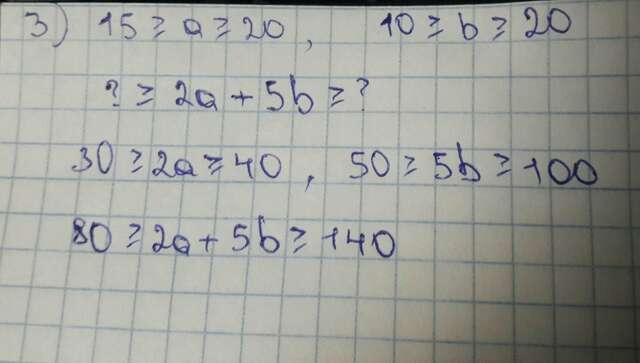 3) 15 ≥ a ≥ 20, 10 ≥ b ≥ 20
? ≥ 2a + 5b ≥ ?
30 ≥ 2a ≥ 40, 50 ≥ 5b ≥ 100
80 ≥ 2a + 5b ≥ 140